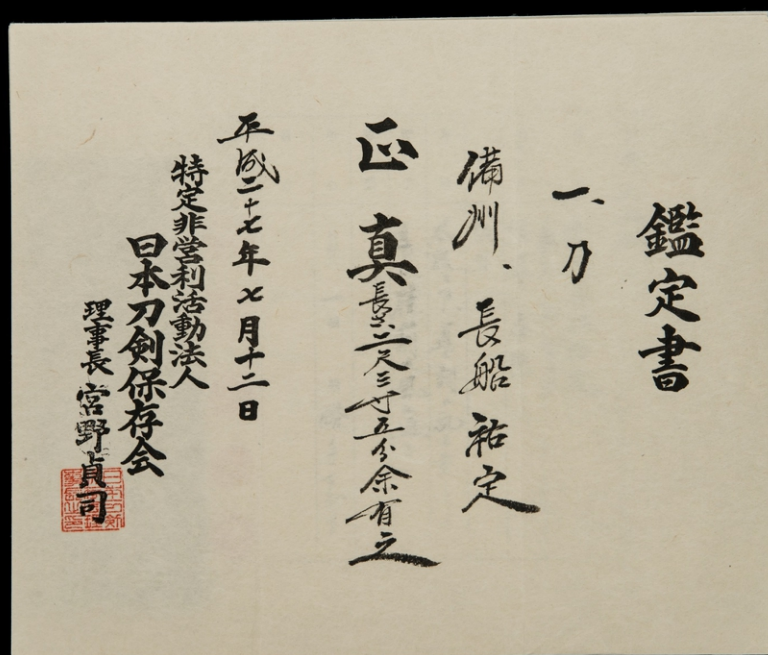 鑑定書
一、刀
備州、長船祐定
正真
長さ二尺三寸五分余有之
平成二十七年七月十二日
特定非営利活動法人
日本刀剣保存会
理事長 宮野貞司